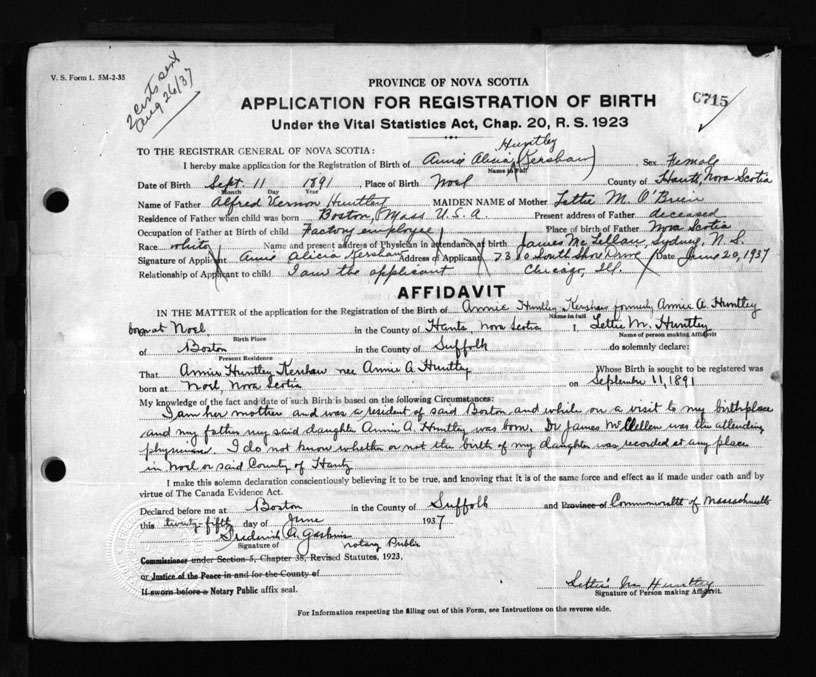 V. S. Form 1. 5M-2-35
2 certs sent
Aug 26/37
PROVINCE OF NOVA SCOTIA
APPLICATION FOR REGISTRATION OF BIRTH
Under the Vital Statistics Act, Chap. 20, R. S. 1923
C715
TO THE REGISTRAR GENERAL OF NOVA SCOTIA:
Huntley
I hereby make application for the Registration of Birth of Annie Alicia (Kershaw) Sex Female
Name in Full
Date of Birth Sept. 11 1891 Place of Birth Noel County of Hants, Nova Scotia
Month Day Year
Name of Father Alfred Vernon Huntley MAIDEN NAME of Mother Lettie M. O'Brien
Residence of Father when child was born Boston, Mass U.S.A. Present address of Father deceased
Occupation of Father at Birth of child Factory employee Place of birth of Father Nova Scotia
Race white Name and present address of Physician in attendance at birth James McLellan, Sydney, N. S.
Signature of Applicant Annie Alicia Kershaw Address of Applicant 7300 South Shore Drive Date June 20, 1937
Relationship of Applicant to child I am the applicant Chicago, Ill.
AFFIDAVIT
IN THE MATTER of the application for the Registration of the Birth of Annie Huntley Kershaw formerly Annie A. Huntley
Name in full
born at Noel in the County of Hants, Nova Scotia I, Lettie M. Huntley
Birth Place Name of person making Affidavit
of Boston in the County of Suffolk do solemnly declare:
Present Residence
That Annie Huntley Kershaw nee Annie A. Huntley Whose Birth is sought to be registered was
born at Noel, Nova Scotia on September 11, 1891
My knowledge of the fact and date of such Birth is based on the following Circumstances:
I am her mother and was a resident of said Boston and while on a visit to my birthplace
and my father my said daughter Annie A. Huntley was born. Dr James McClellen was the attending
physician. I do not know whether or not the birth of my daughter was recorded at any place
in Noel or said County of Hants
I make this solemn declaration conscientiously believing it to be true, and knowing that it is of the same force and effect as if made under oath and by
virtue of The Canada Evidence Act.
Declared before me at Boston in the County of Suffolk and Province of Commonwealth of Massachusetts
this twenty-fifth day of June 1937
Frederick A. Gaskins
Signature of Notary Public
Commissioner under Section 5, Chapter 38, Revised Statutes, 1923,
or Justice of the Peace in and for the County of
If sworn before a Notary Public affix seal.
Lettie M. Huntley
Signature of Person making Affidavit.
For Information respecting the filling out of this Form, see Instructions on the reverse side.